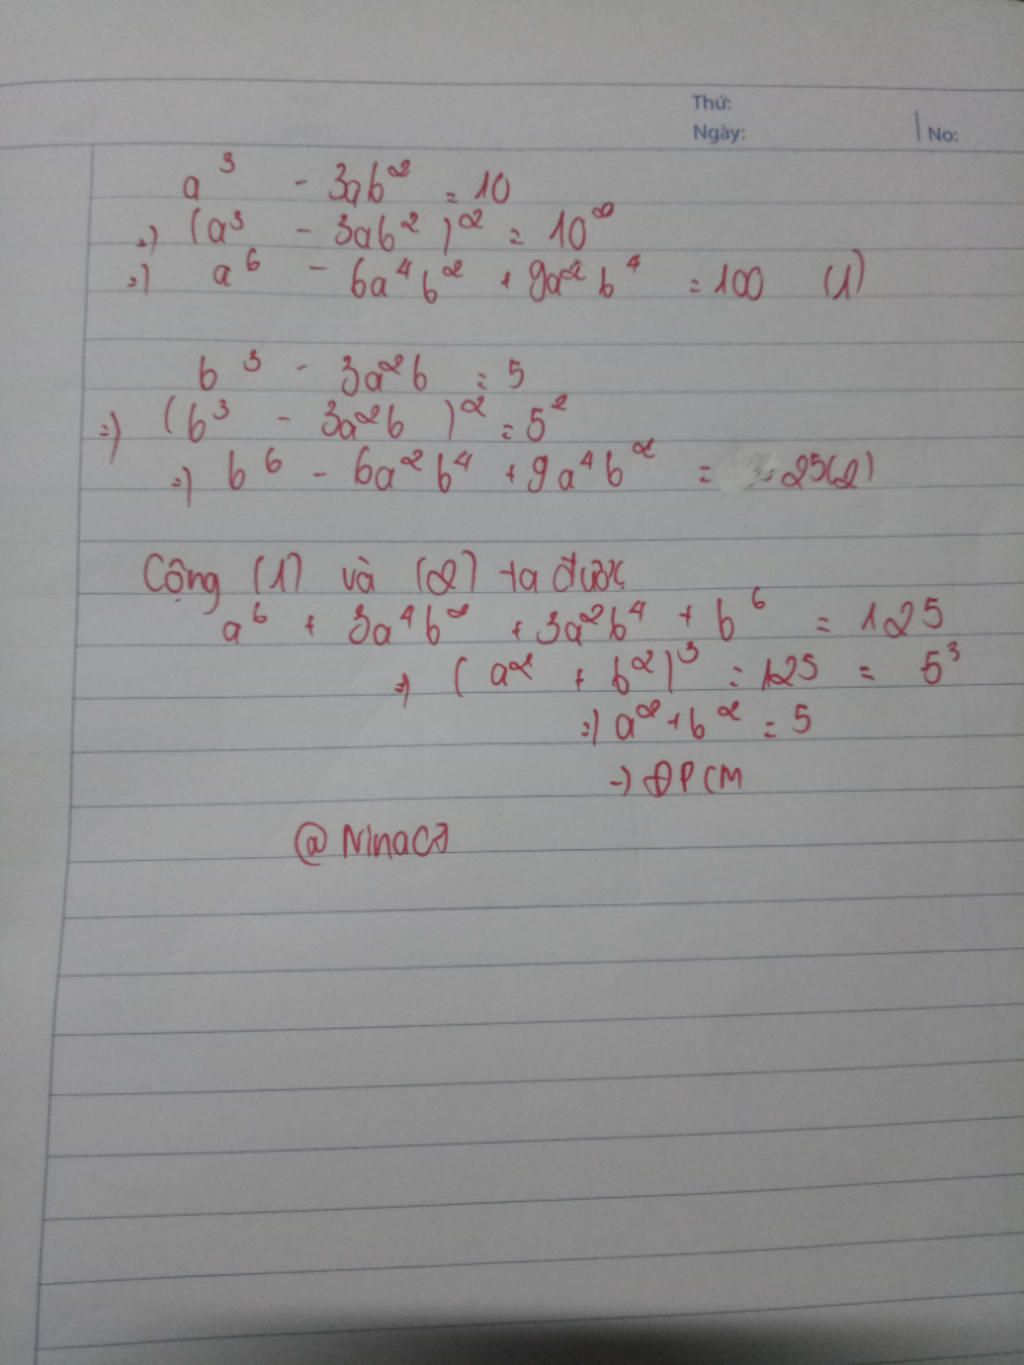 Thứ:
Ngày:
No:
a³ - 3ab² = 10
=> (a³ - 3ab²)² = 10²
=> a⁶ - 6a⁴b² + 9a²b⁴ = 100 (1)
b³ - 3a²b = 5
=> (b³ - 3a²b)² = 5²
=> b⁶ - 6a²b⁴ + 9a⁴b² = 25(2)
Cộng (1) và (2) ta được
a⁶ + 3a⁴b² + 3a²b⁴ + b⁶ = 125
=> (a² + b²)³ = 125 = 5³
=> a² + b² = 5
-> ĐPCM